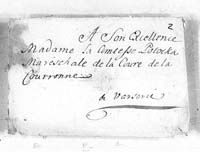 2
A Son Excellence
Madame la Comtesse Potocka
Mareschale de la Coure de la
Courronne
à Varsovie